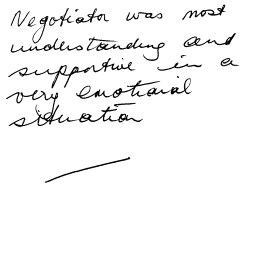 Negotiator was most
understanding and
supportive in a
very emotional
situation